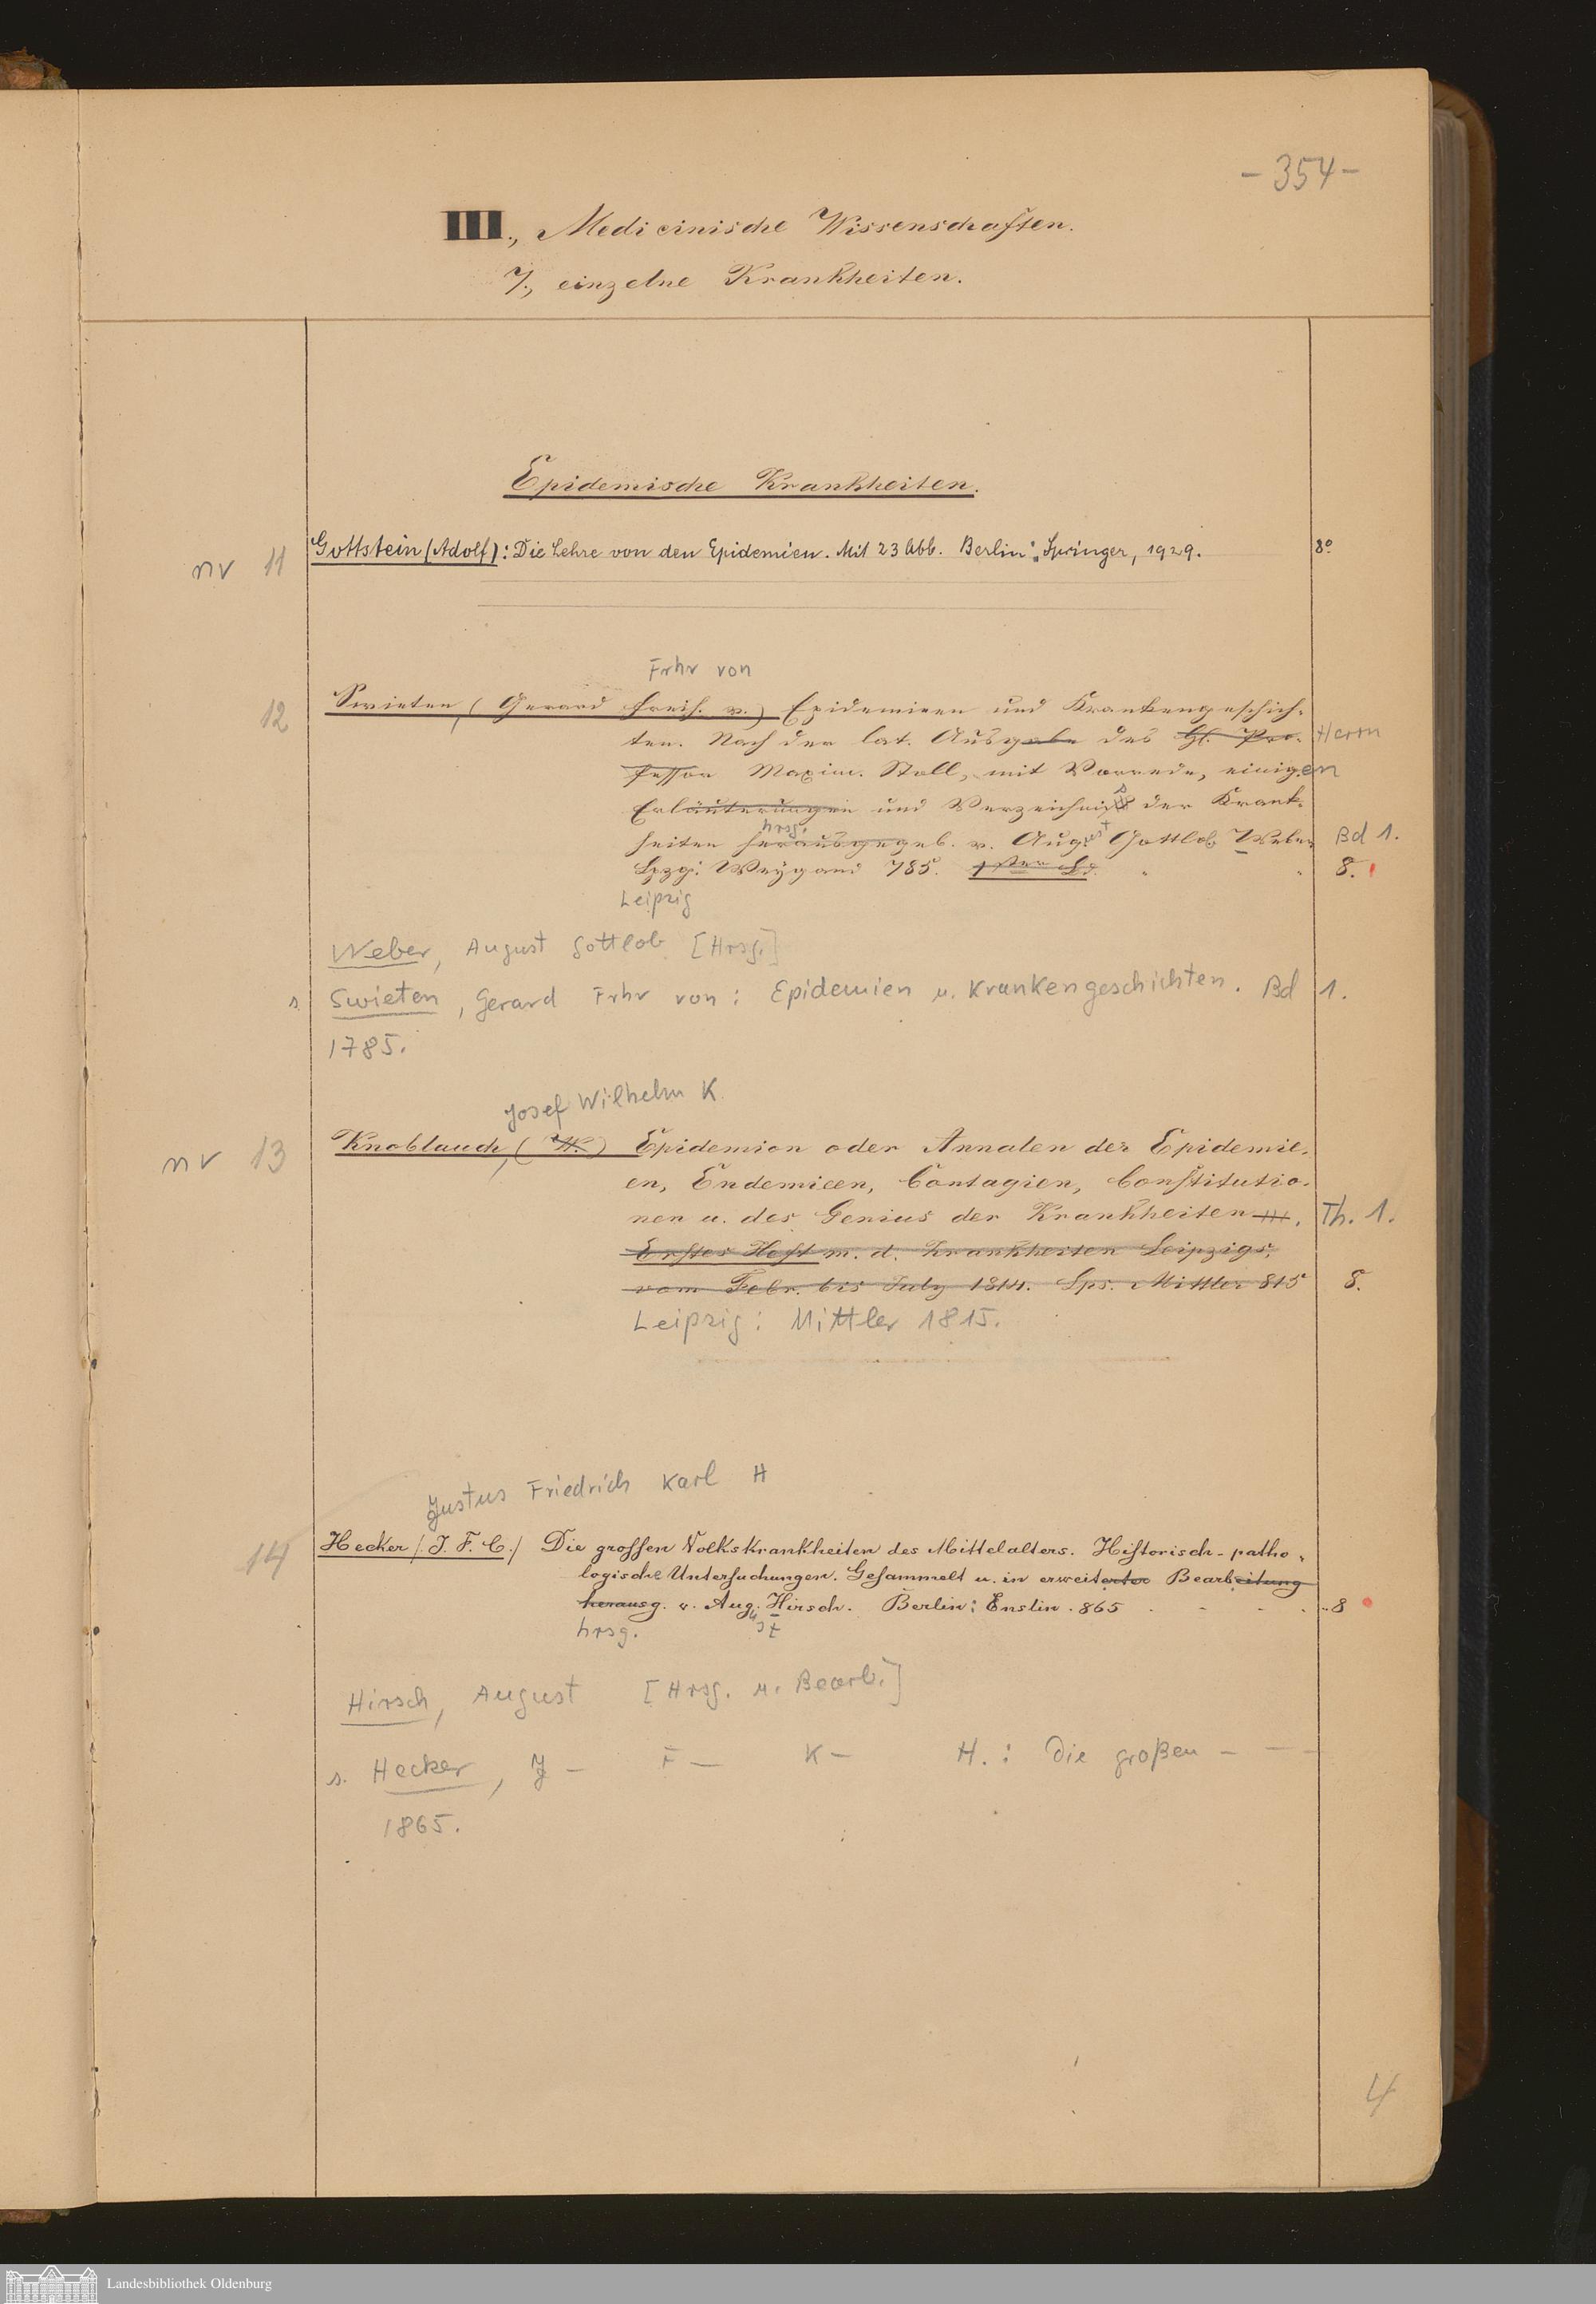 - 354 -
III., Medicinische Wissenschaften.
7., einzelne Krankheiten.
Epidemische Krankheiten.
nv 11 Gottstein (Adolf): Die Lehre von den Epidemien. Mit 23 Abb. Berlin: Springer, 1929. 8°
Frhr von
12 Swieten, (Gerard Freih. v.) Epidemieen und Krankengeschich-
ten. Nach der lat. Ausgabe des H. Pro- Herrn
fessor Maxim. Stoll, mit Vorrede, einigen
Erläuterungen und Verzeichniß s der Krank-
hrsg.
heiten herausgegeb. v. August Gottlob Weber Bd 1.
Lpzg: Weygand 785. 1ster Bd. 8.
Leipzig
Weber, August Gottlob [Hrsg.]
s. Swieten, Gerard Frhr von: Epidemien u. Krankengeschichten. Bd 1.
1785.
Josef Wilhelm K.
nv 13 Knoblauch, (W.) Epidemion oder Annalen der Epidemie-
en, Endemieen, Contagien, Constitutio-
nen u. des Genius der Krankheiten. Th. 1.
Erstes Heft m. d. Krankheiten Leipzigs,
vom Febr. bis July 1814. Lps. Mittler 815 8.
Leipzig: Mittler 1815.
Justus Friedrich Karl H
14 Hecker /. J. F. C./ Die grossen Volkskrankheiten des Mittelalters. Historisch-patho-
logische Untersuchungen. Gesammelt u. in erweiterter Bearbeitung
herausg. v. Aug. Hirsch. Berlin: Enslin. 865 8
hrsg. ust
Hirsch, August [Hrsg. u. Bearb.]
s. Hecker, J – F – K – H.: Die großen – – –
1865.
4
Landesbibliothek Oldenburg